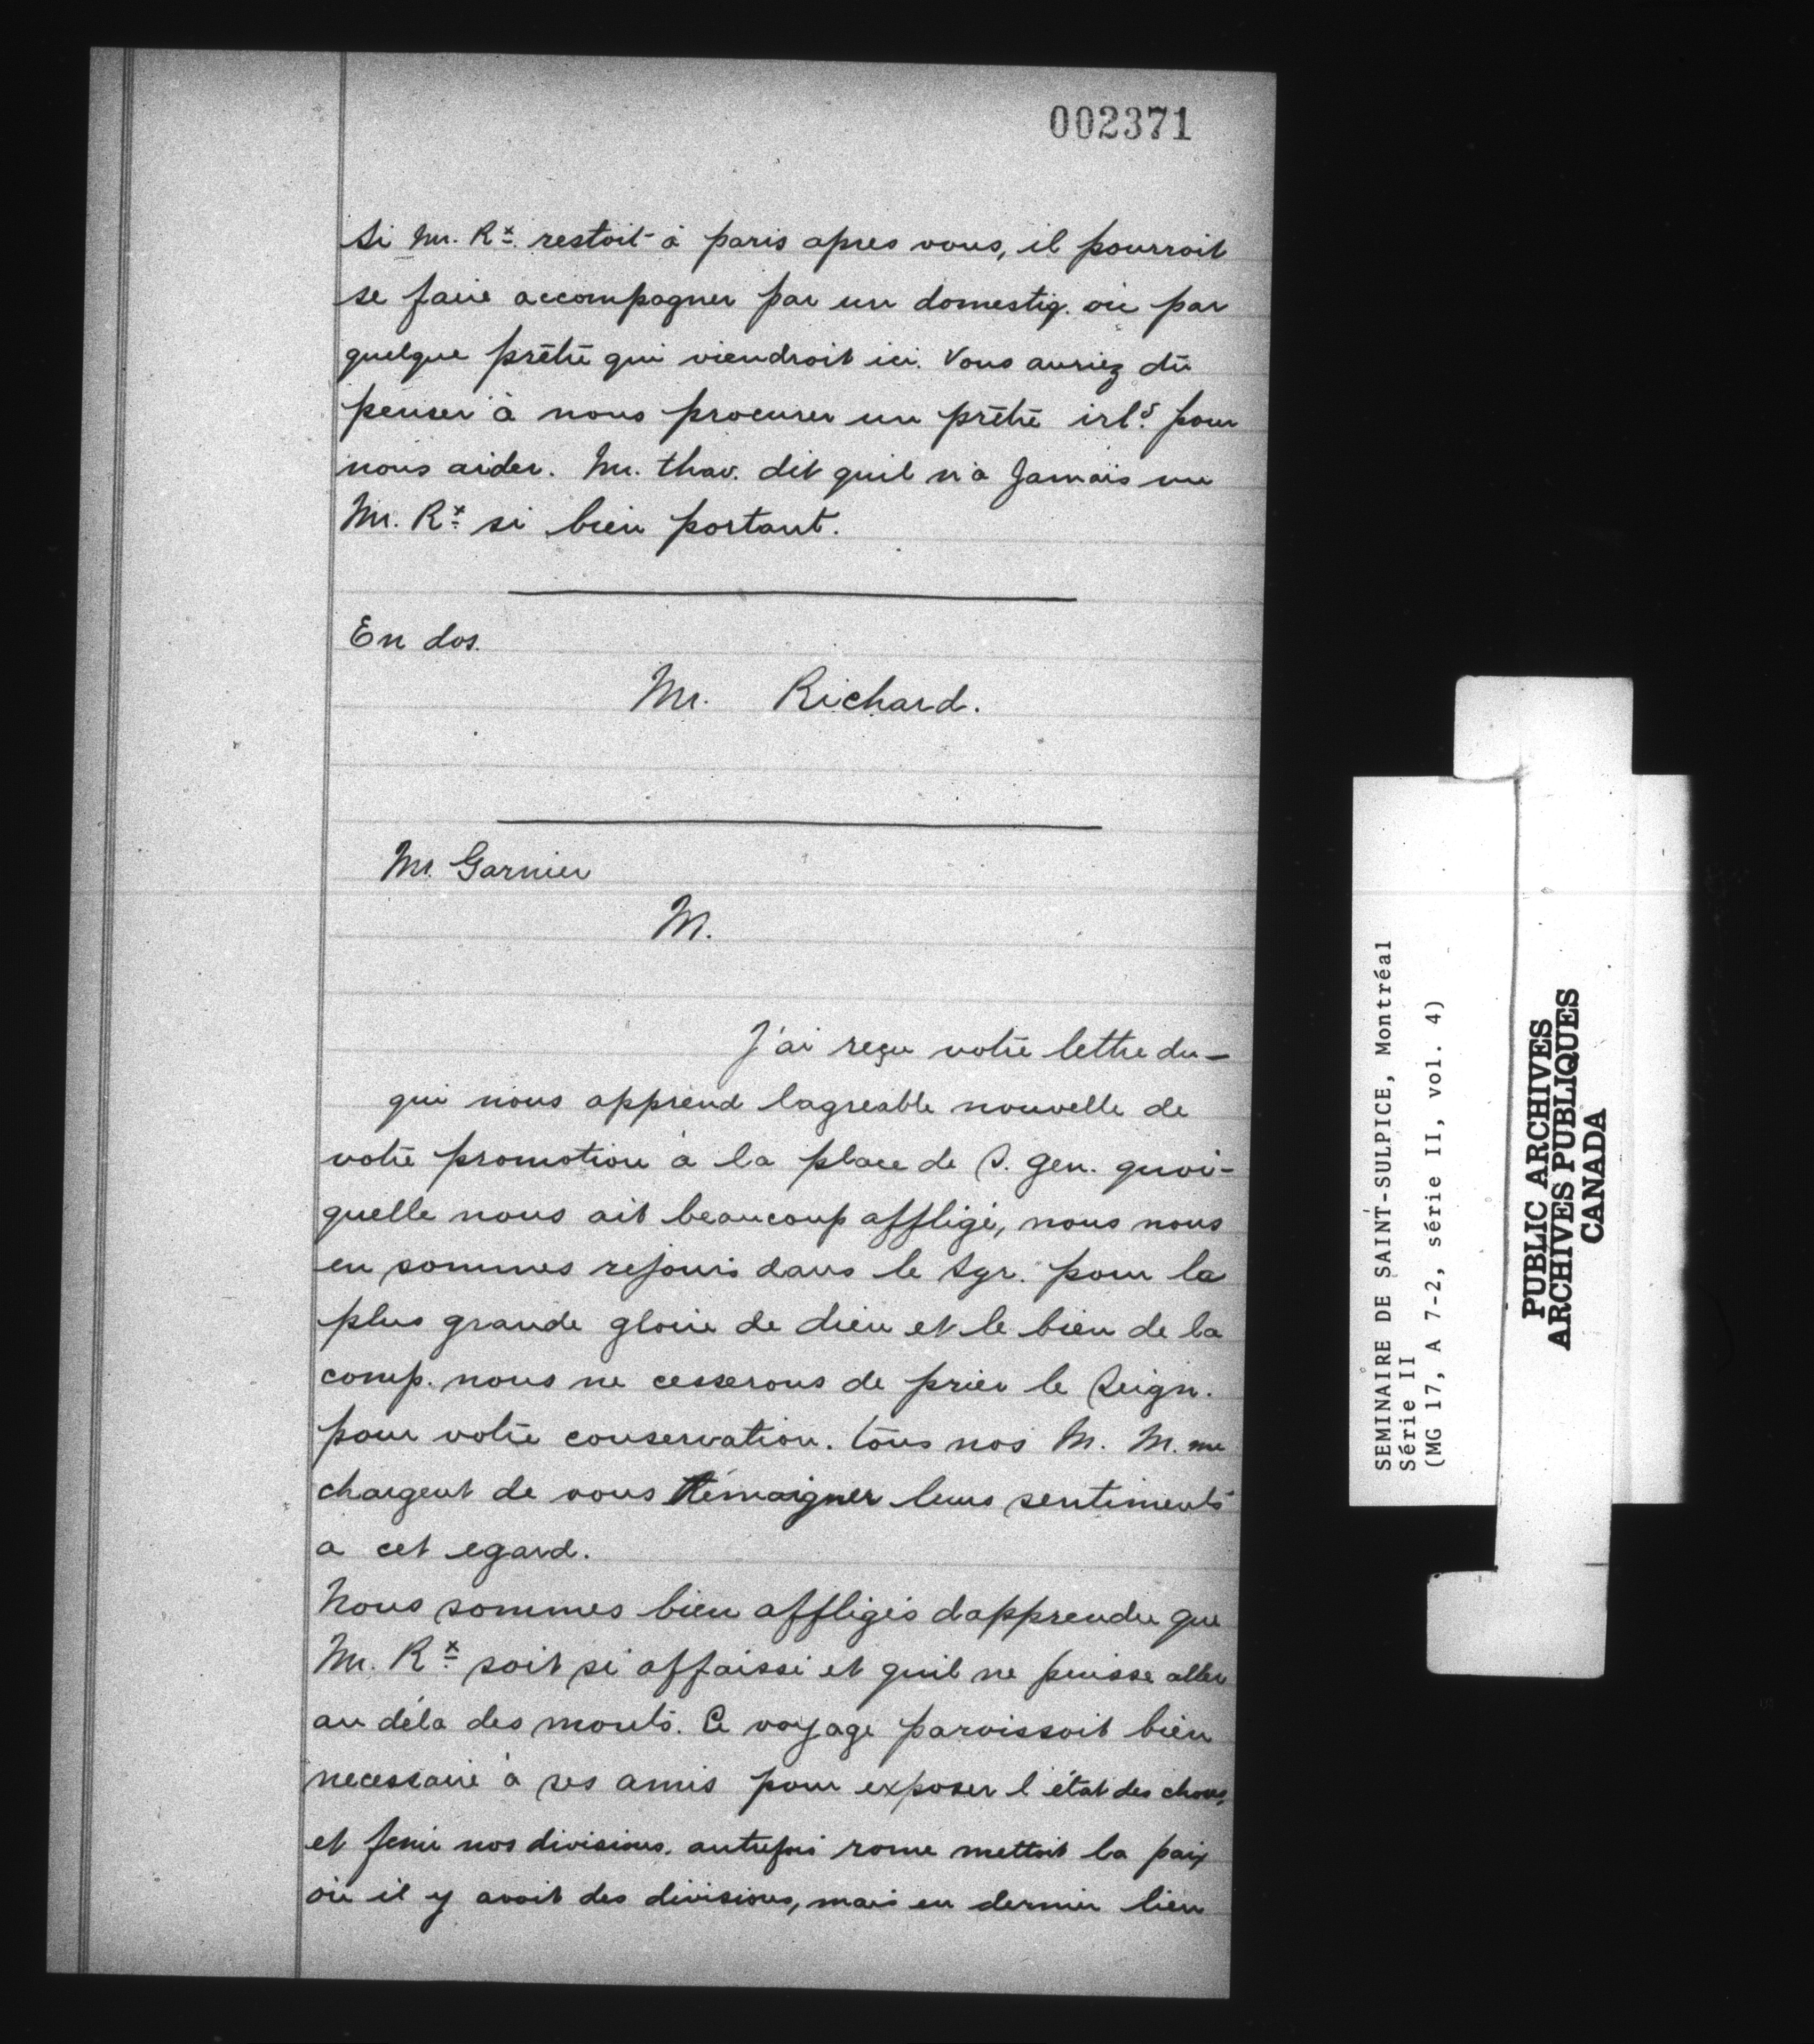 002371
Si Mr. Rx. restoit à paris apres vous, il pourroit
se faire accompagner par un domestiq. ou par
quelque prêtre qui viendroit ici. Vous auriez dû
penser à nous procurer un prêtre irl.s pour
nous aider. Mr. thav. dit quil n'a Jamais vu
Mr. Rx. si bien portant.
En dos.
Mr. Richard.
Mr. Garnier
M.
J'ai reçu votre lettre du —
qui nous apprend lagreable nouvelle de
votre promotion à la place de S. gen. quoi-
quelle nous ait beaucoup affligé, nous nous
en sommes rejouis dans le Sgr. pour la
plus grande gloire de dieu et le bien de la
comp. nous ne cesserons de prier le Seign.
pour votre conservation. tous nos M. M. me
chargent de vous témoigner leurs sentiments
a cet egard.
Nous sommes bien affligés dapprendre que
Mr. Rx. soit si affaissé et quil ne puisse aller
au déla des monts. Ce voyage paroissoit bien
necessaire à ses amis pour exposer l'état des choses,
et finir nos divisions. autrefois rome mettoit la paix
où il y avoit des divisions, mais en dernier lieu
SEMINAIRE DE SAINT-SULPICE, Montréal
Série II
(MG 17, A 7-2, série II, vol. 4)
PUBLIC ARCHIVES
ARCHIVES PUBLIQUES
CANADA